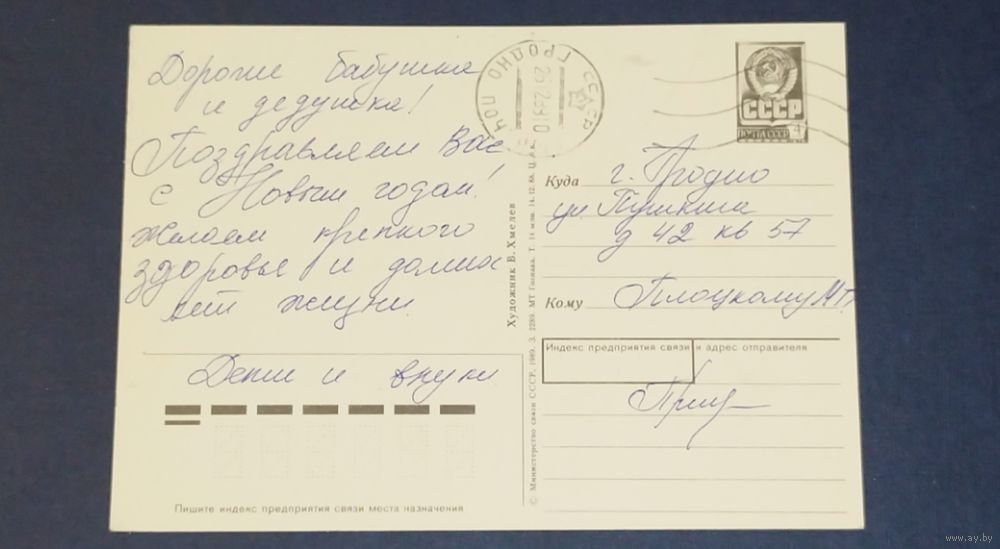 Дорогие бабушка
и дедушка!
Поздравляем Вас
с Новым годом!
Желаем крепкого
здоровья и долгих
лет жизни.
Дети и внуки
Пишите индекс предприятия связи места назначения
Художник В. Хмелев
© Министерство связи СССР, 1989. З. 2289. МТ Гознака. Т. 14 млн. 14.12.88. Ц. 5 к.
СССР
ГРОДНО ПОЧ
СССР
ПОЧТА СССР 4
Куда г. Гродно
ул Пушкина
д 42 кв 57
Кому Плоцкому М.П.
Индекс предприятия связи и адрес отправителя
www.ay.by